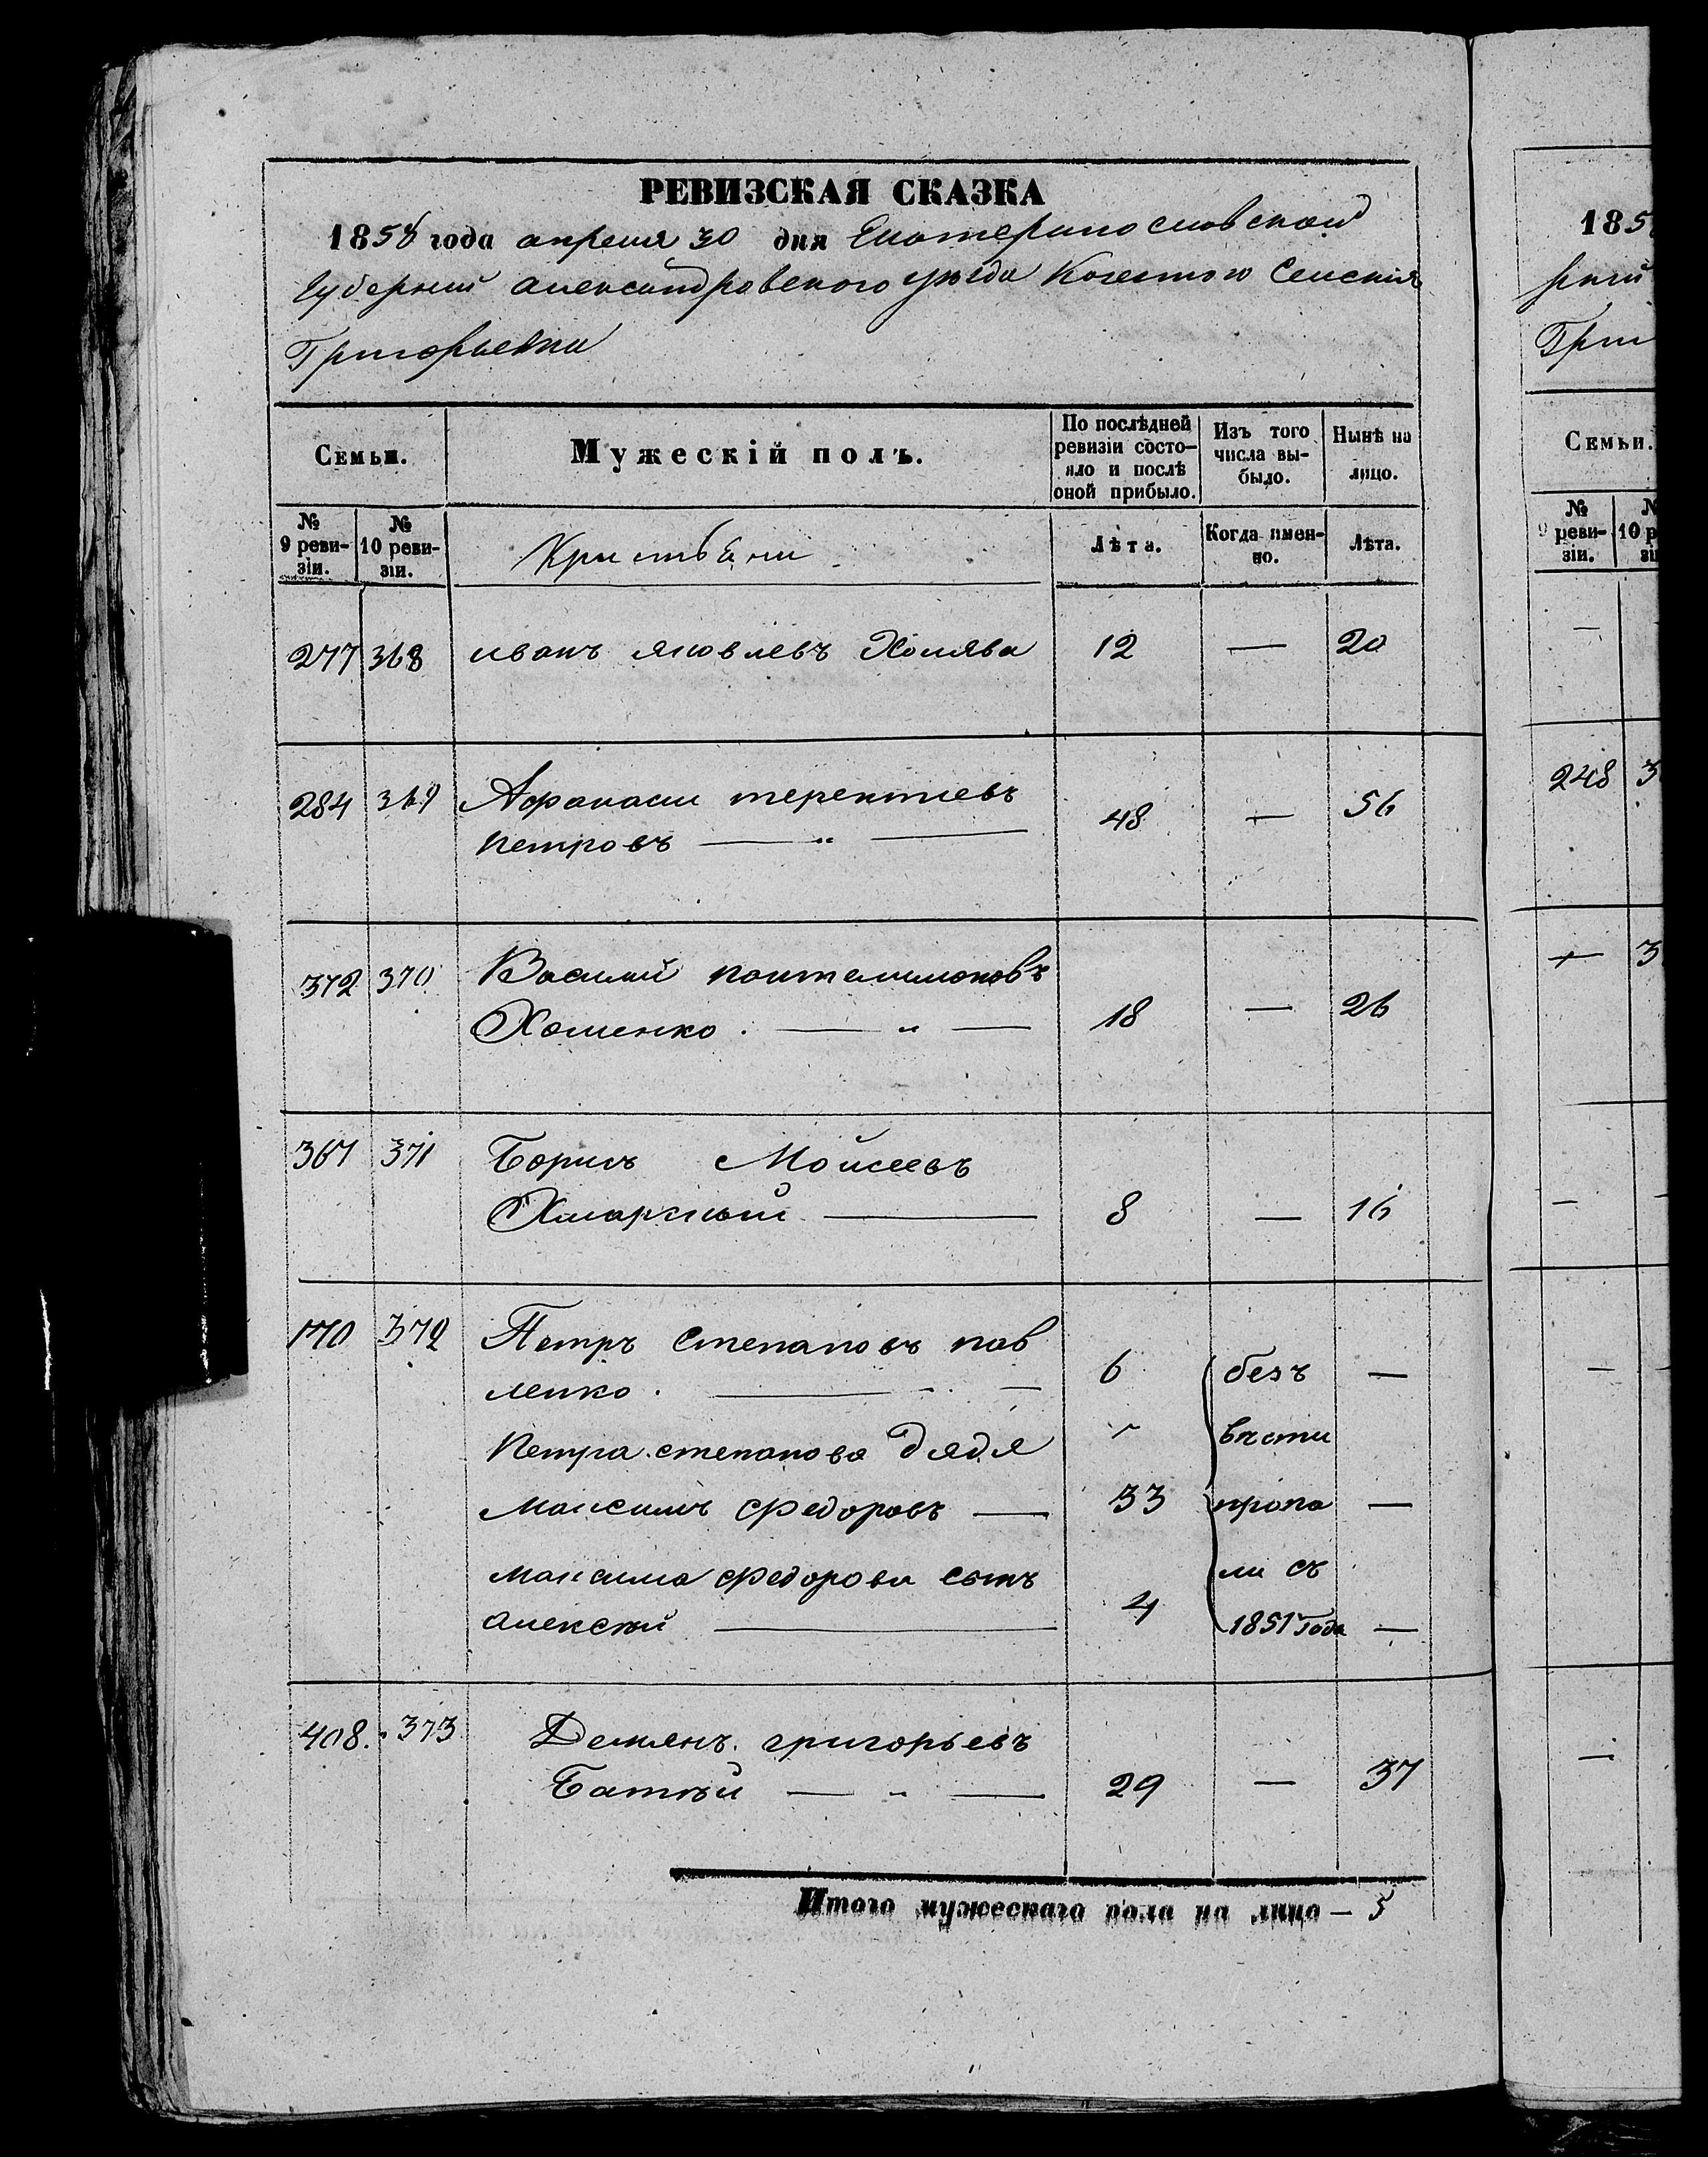 РЕВИЗСКАЯ СКАЗКА
1858 года апреля 30 дня Екатеринославской
Губернии Александровского уезда Селения
Григорьевки
Семьи.
Мужескій полъ.
По послѣдней ревизіи состо-
яло и послѣ
оной прибыло.
Изъ того
числа вы-
было.
Нынѣ на
лицо.
№
9 реви-
зіи.
№
10 реви-
зіи.
Лѣта.
Когда имен-
но.
Лѣта.
277 368 иванъ яковлевъ Холява 12 — 20
284 369 Афанаси терентиевъ
петровъ — " — 48 — 56
372 370 Василий понтелимоновъ
Хоменко . — " — 18 — 26
367 371 Борисъ Мойсеевъ
8 — 16
170 372 Петръ Степановъ пав
ленко . — 6 безъ —
Петра степанова дядя вѣсти
Максимъ Федоровъ — 33 пропа —
Максима Федорова сынъ ли съ
алексѣй — 4 1851 года —
408. 373 Демянъ григорьевъ
Батѣй — " — 29 — 37
Итого мужескаго пола на лицо — 5
185
рний
Гри
Семьи.
№
9 реви-
зіи.
248 3
3